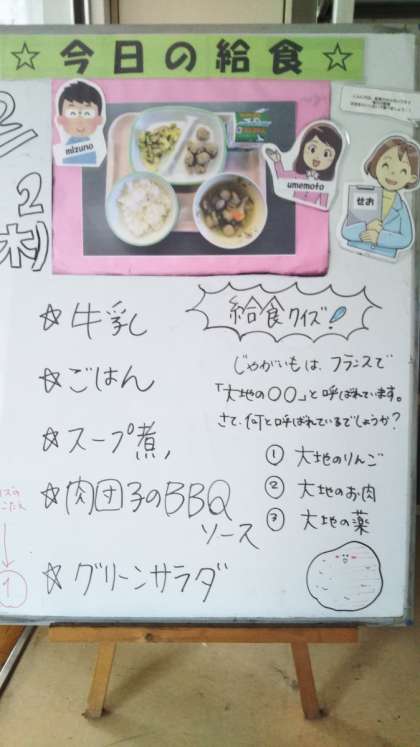 ☆今日の給食☆
mizuno
umemoto
せお
2
(木)
☆牛乳
☆ごはん
☆スープ煮
☆肉団子のBBQ
ソース
☆グリーンサラダ
給食クイズ!
じゃがいもは、フランスで
「大地の〇〇」と呼ばれています。
さて、何と呼ばれているでしょうか?
① 大地のりんご
② 大地のお肉
③ 大地の薬
1